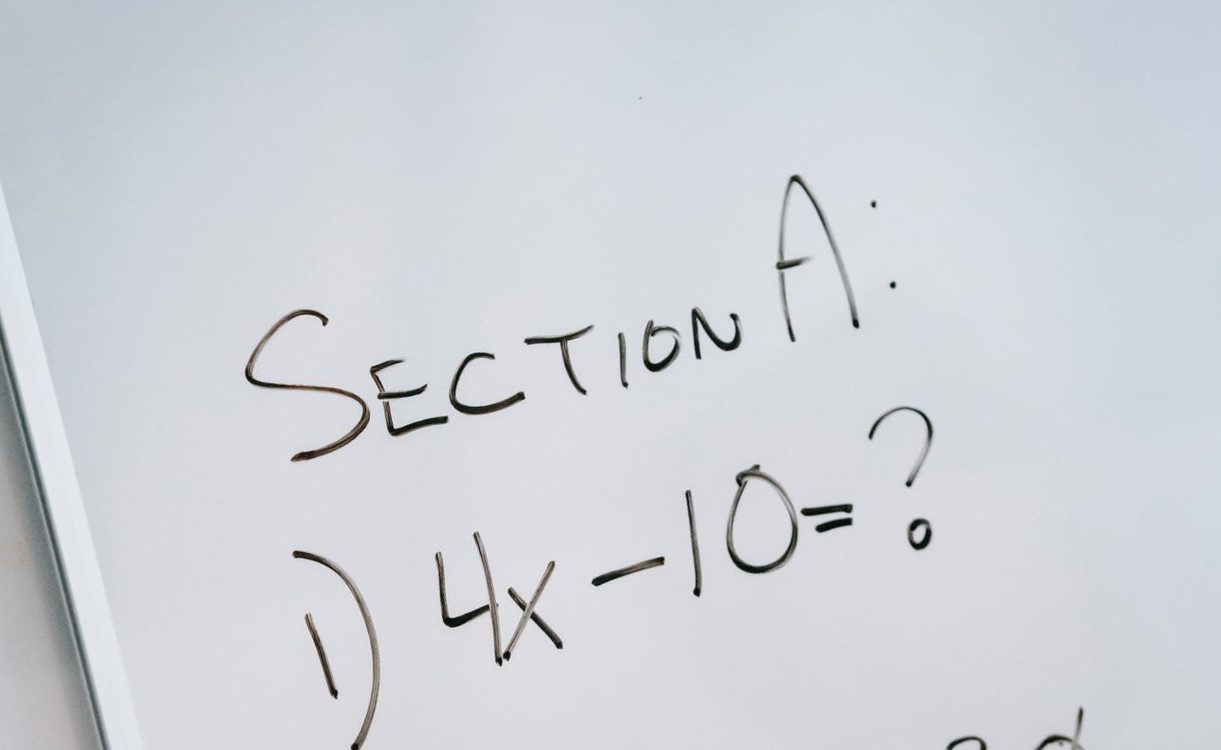 SECTION A:
1) 4x - 10 = ?